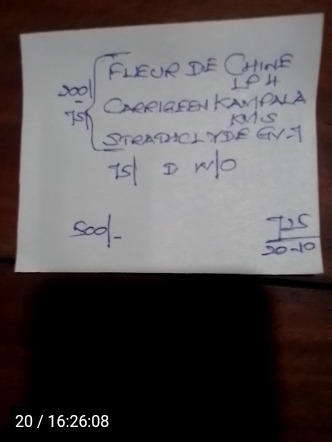 FLEUR DE CHINE
LPH
200/
CARRIGEEN KAMPALA
75/
KMS
STRATHCLYDE GV-7
75/ D W/O
500/-
725
20-10
20 / 16:26:08